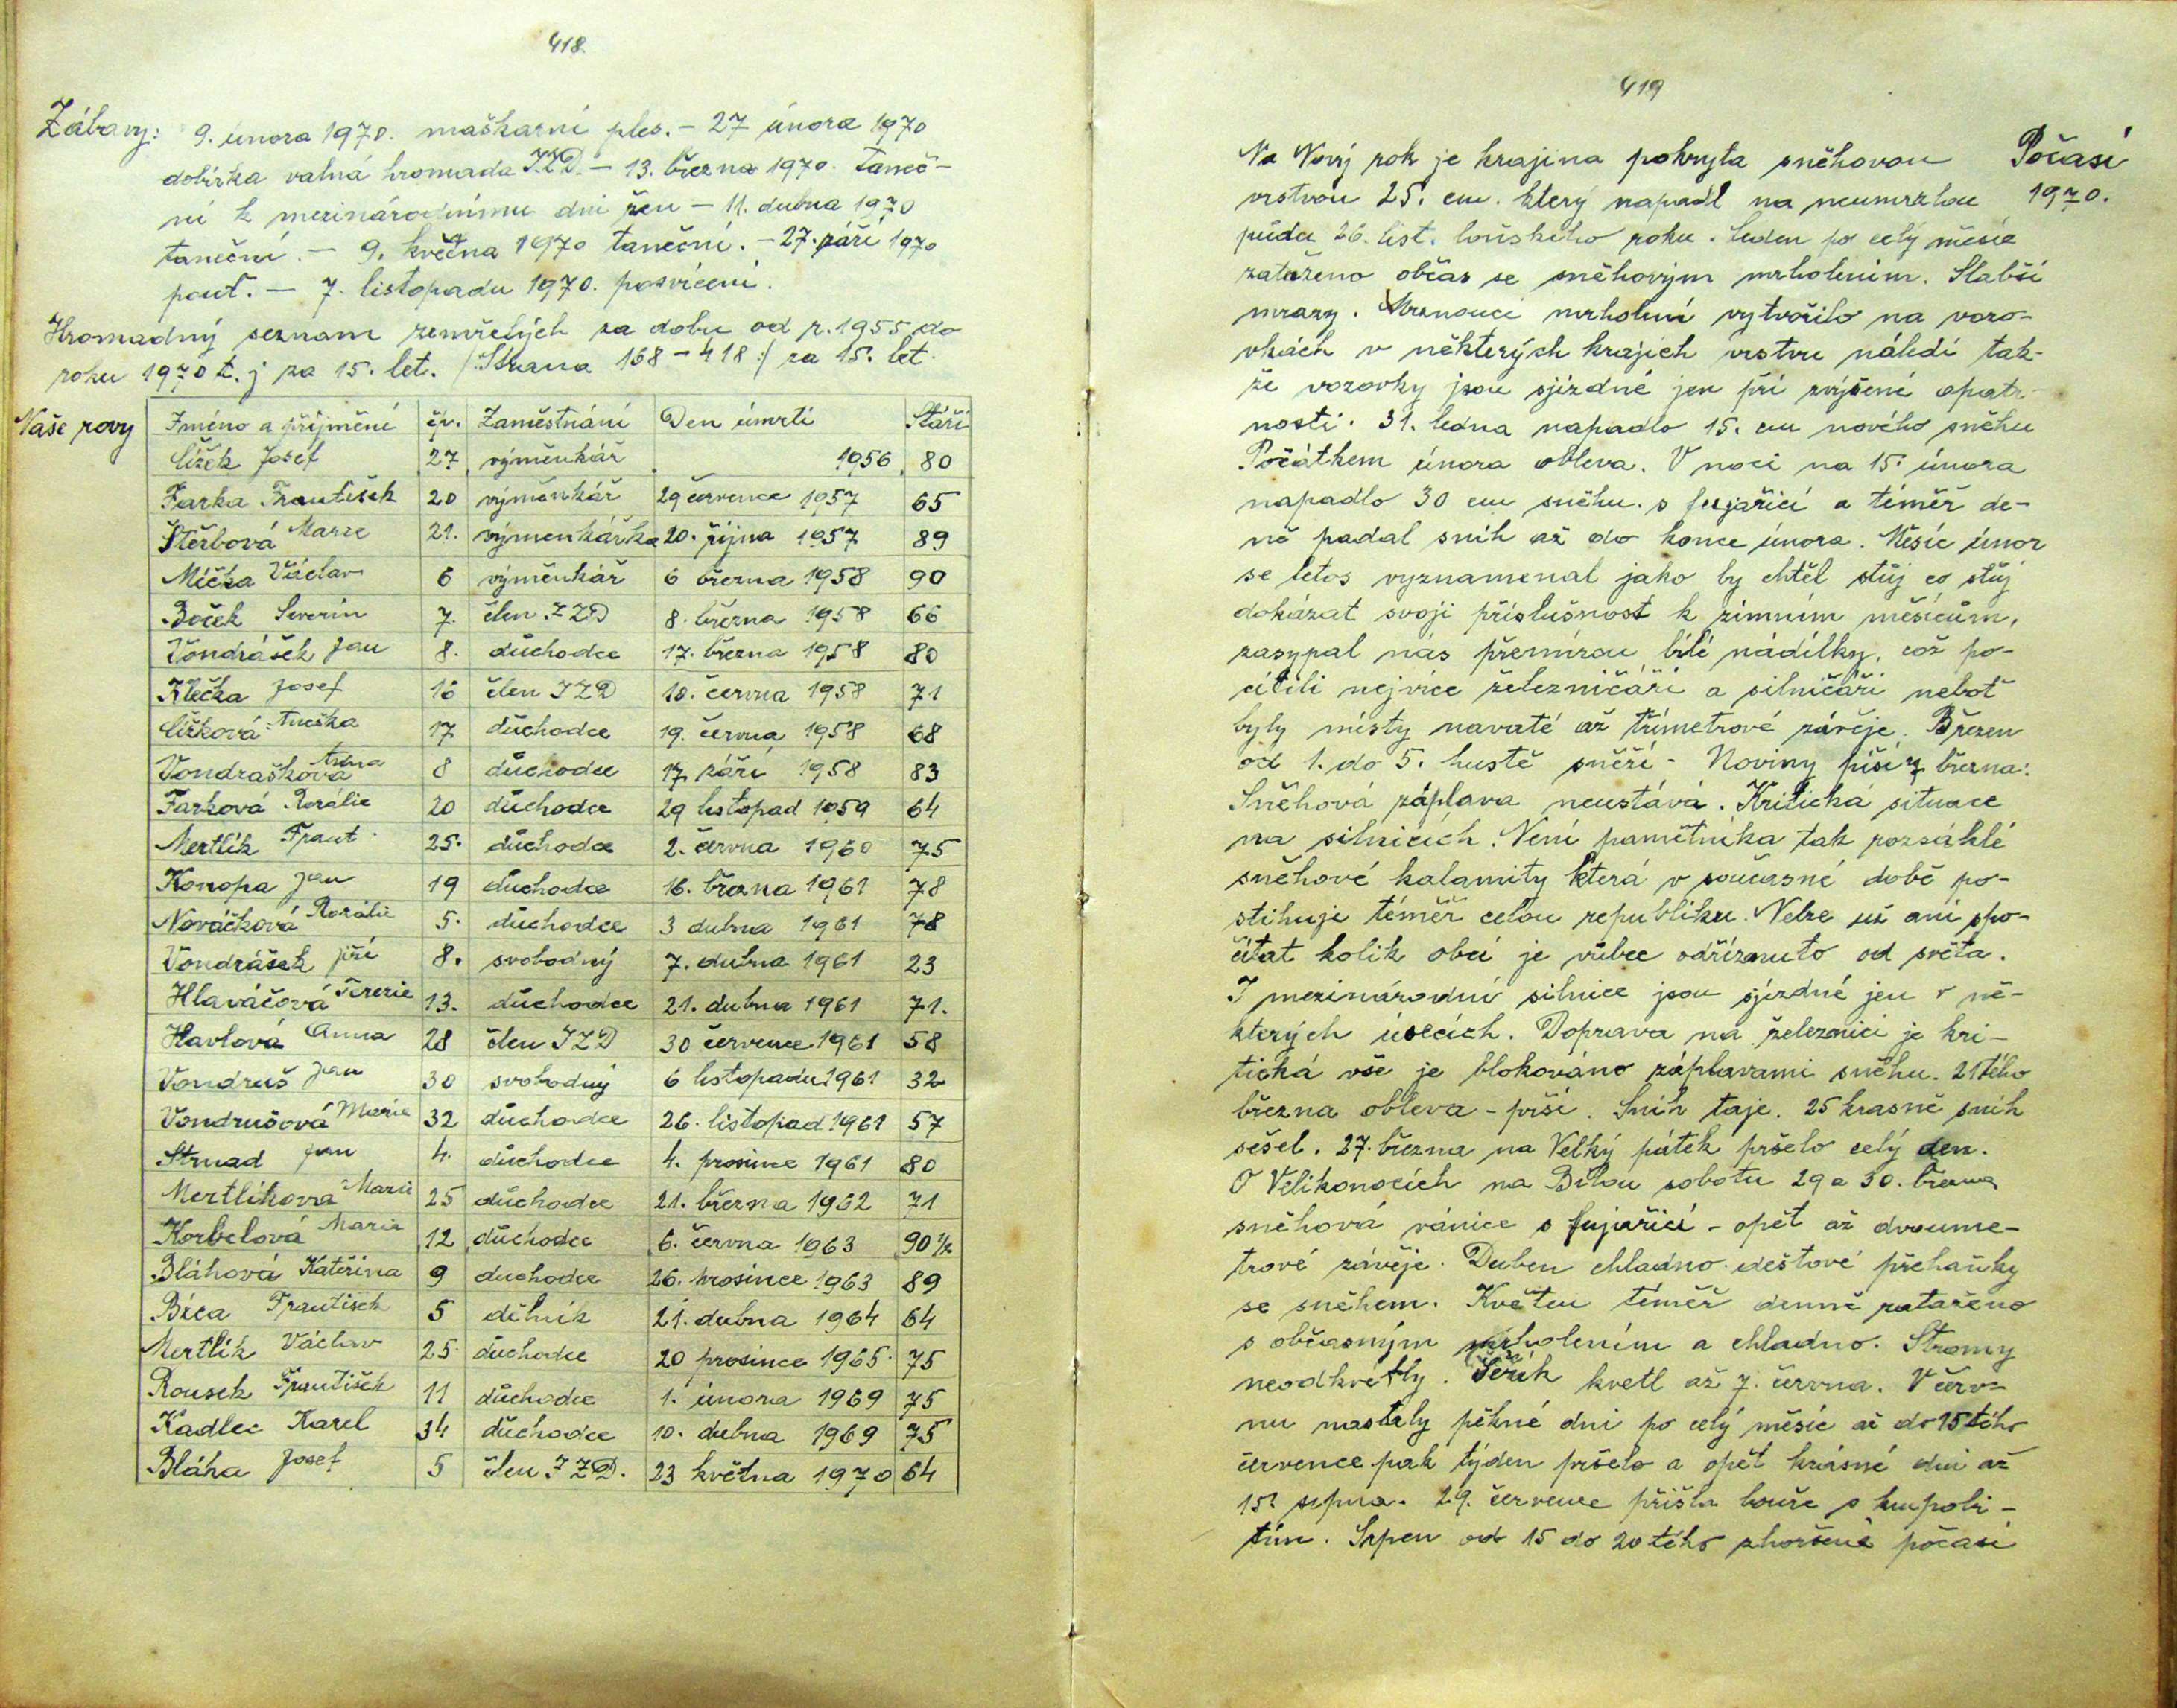 418.
Zábavy: 9. února 1970. maškarní ples. – 27 února 1970
dobírka valná hromada J.Z.D. – 13. března 1970. taneč-
ní k mezinárodnímu dni žen – 11. dubna 1970
taneční. – 9. května 1970 taneční. – 27. září 1970
pouť. – 7. listopadu 1970. posvícení.
Hromadný seznam zemřelých za dobu od r. 1955 do
roku 1970 t. j za 15. let. /: Strana 168 – 418 :/ za 15. let.
Naše rovy
Jméno a příjmění čp. Zaměstnání Den úmrtí Stáří
Čížek Josef 27 výměnkář 1956 80
Farka František 20 výměnkář 29 července 1957 65
Štěrbová Marie 21. výmenkářka 20. října 1957 89
Mička Václav 6 výměnkář 6 března 1958 90
Boček Severin 7. člen JZD 8. března 1958 66
Vondrášek Jan 8. důchodce 17. března 1958 80
Klečka Josef 16 člen JZD 10. června 1958 71
Čížková Anežka 17 důchodce 19. června 1958 68
Vondrašková Anna 8 důchodce 17 září 1958 83
Farková Rozálie 20 důchodce 29 listopad 1959 64
Mertlík Frant. 25. důchodce 2. června 1960 75
Konopa Jan 19 důchodce 16. března 1961 78
Nováčková Rozálie 5. důchodce 3 dubna 1961 78
Vondrášek Jiří 8. svobodný 7. dubna 1961 23
Hlaváčová Terezie 13. důchodce 21. dubna 1961 71.
Havlová Anna 28 člen JZD 30 července 1961 58
Vondruš Jan 30 svobodný 6 listopadu 1961 32
Vondrušová Marie 32 důchodce 26. listopad 1961 57
Strnad Jan 4. důchodce 4. prosince 1961 80
Mertlíkova Marie 25 důchodce 21. března 1962 71
Korbelová Marie 12 důchodce 6. června 1963 90 1/2
Bláhová Kateřina 9 duchodce 26. prosince 1963 89
Bica František 5 dělník 21. dubna 1964 64
Mertlík Václav 25. důchodce 20 prosince 1965. 75
Rousek František 11 důchodce 1. února 1969 75
Kadlec Karel 34 důchodce 10. dubna 1969 75
Bláha Josef 5 člen JZD. 23 května 1970 64
419
Počasí
1970.
Na Nový rok je krajina pokryta sněhovou
vrstvou 25. cm. který napadl na neumrzlou
půdu 26. list. loňského roku. Leden po celý měsíc
zataženo občas se sněhovým mrholením. Slabší
mrazy. Mrznoucí mrholení vytvořilo na vozo-
vkách v některých krajích vrstvu náledí tak-
že vozovky jsou sjízdné jen při zvýšené opatr-
nosti. 31. ledna napadlo 15. cm nového sněhu
Počátkem února obleva. V noci na 15. února
napadlo 30 cm sněhu. s fujařicí a téměř de-
ně padal sníh až do konce února. Měsíc únor
se letos vyznamenal jako by chtěl stůj co stůj
dokázat svoji příslušnost k zimním měsícům,
zasypal nás přemírou bílé nádílky, což po-
cítili nejvíce železničáři a silničáři neboť
byly místy navaté až třímetrové závěje. Březen
od 1. do 5. hustě sněží – Noviny píší 7 března:
Sněhová záplava neustává. Kritická situace
na silnicích. Není pamětníka tak rozsáhlé
sněhové kalamity která v současné době po-
stihuje téměř celou republiku. Nelze už ani spo-
čítat kolik obcí je vůbec odříznuto od světa.
I mezinárodní silnice jsou sjízdné jen v ně-
kterých úsecích. Doprava na železnici je kri-
tická vše je blokováno záplavami sněhu. 21tého
března obleva – prší. Sníh taje. 25 krasně sníh
sešel. 27. března na Velký pátek pršelo celý den.
O Velikonocích na Bílou sobotu 29 a 30. března
sněhová vánice s fujařicí – opět až dvoume-
trové závěje. Duben chladno. deštové přehaňky
se sněhem. Květen téměř denně zataženo
s občasným mrholením a chladno. Stromy
neodkvétly. Šeřík kvetl až 7. června. V červ-
nu nastaly pěkné dni po celý měsíc až do 15tého
července pak týden pršelo a opět krásné dni až
15. srpna. 29. července přišla bouře s krupobi-
tím. Srpen od 15 do 20tého zhoršené počasí